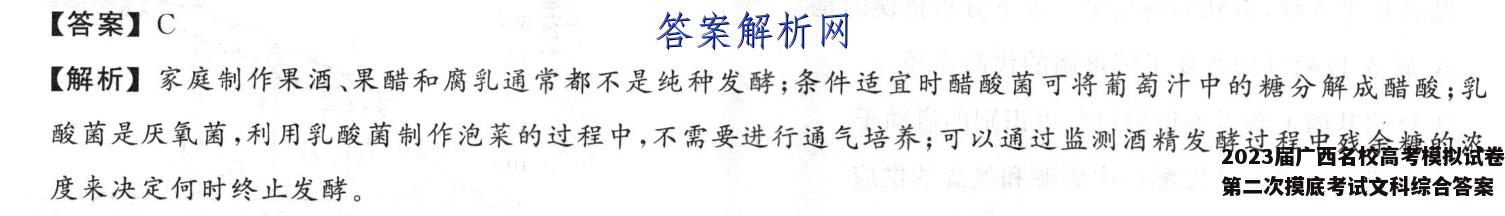 【答案】C
答案解析网
【解析】家庭制作果酒、果醋和腐乳通常都不是纯种发酵;条件适宜时醋酸菌可将葡萄汁中的糖分解成醋酸;乳
酸菌是厌氧菌,利用乳酸菌制作泡菜的过程中,不需要进行通气培养;可以通过监测酒精发酵过程中残余糖的浓
度来决定何时终止发酵。
2023届广西名校高考模拟试卷
第二次摸底考试文科综合答案